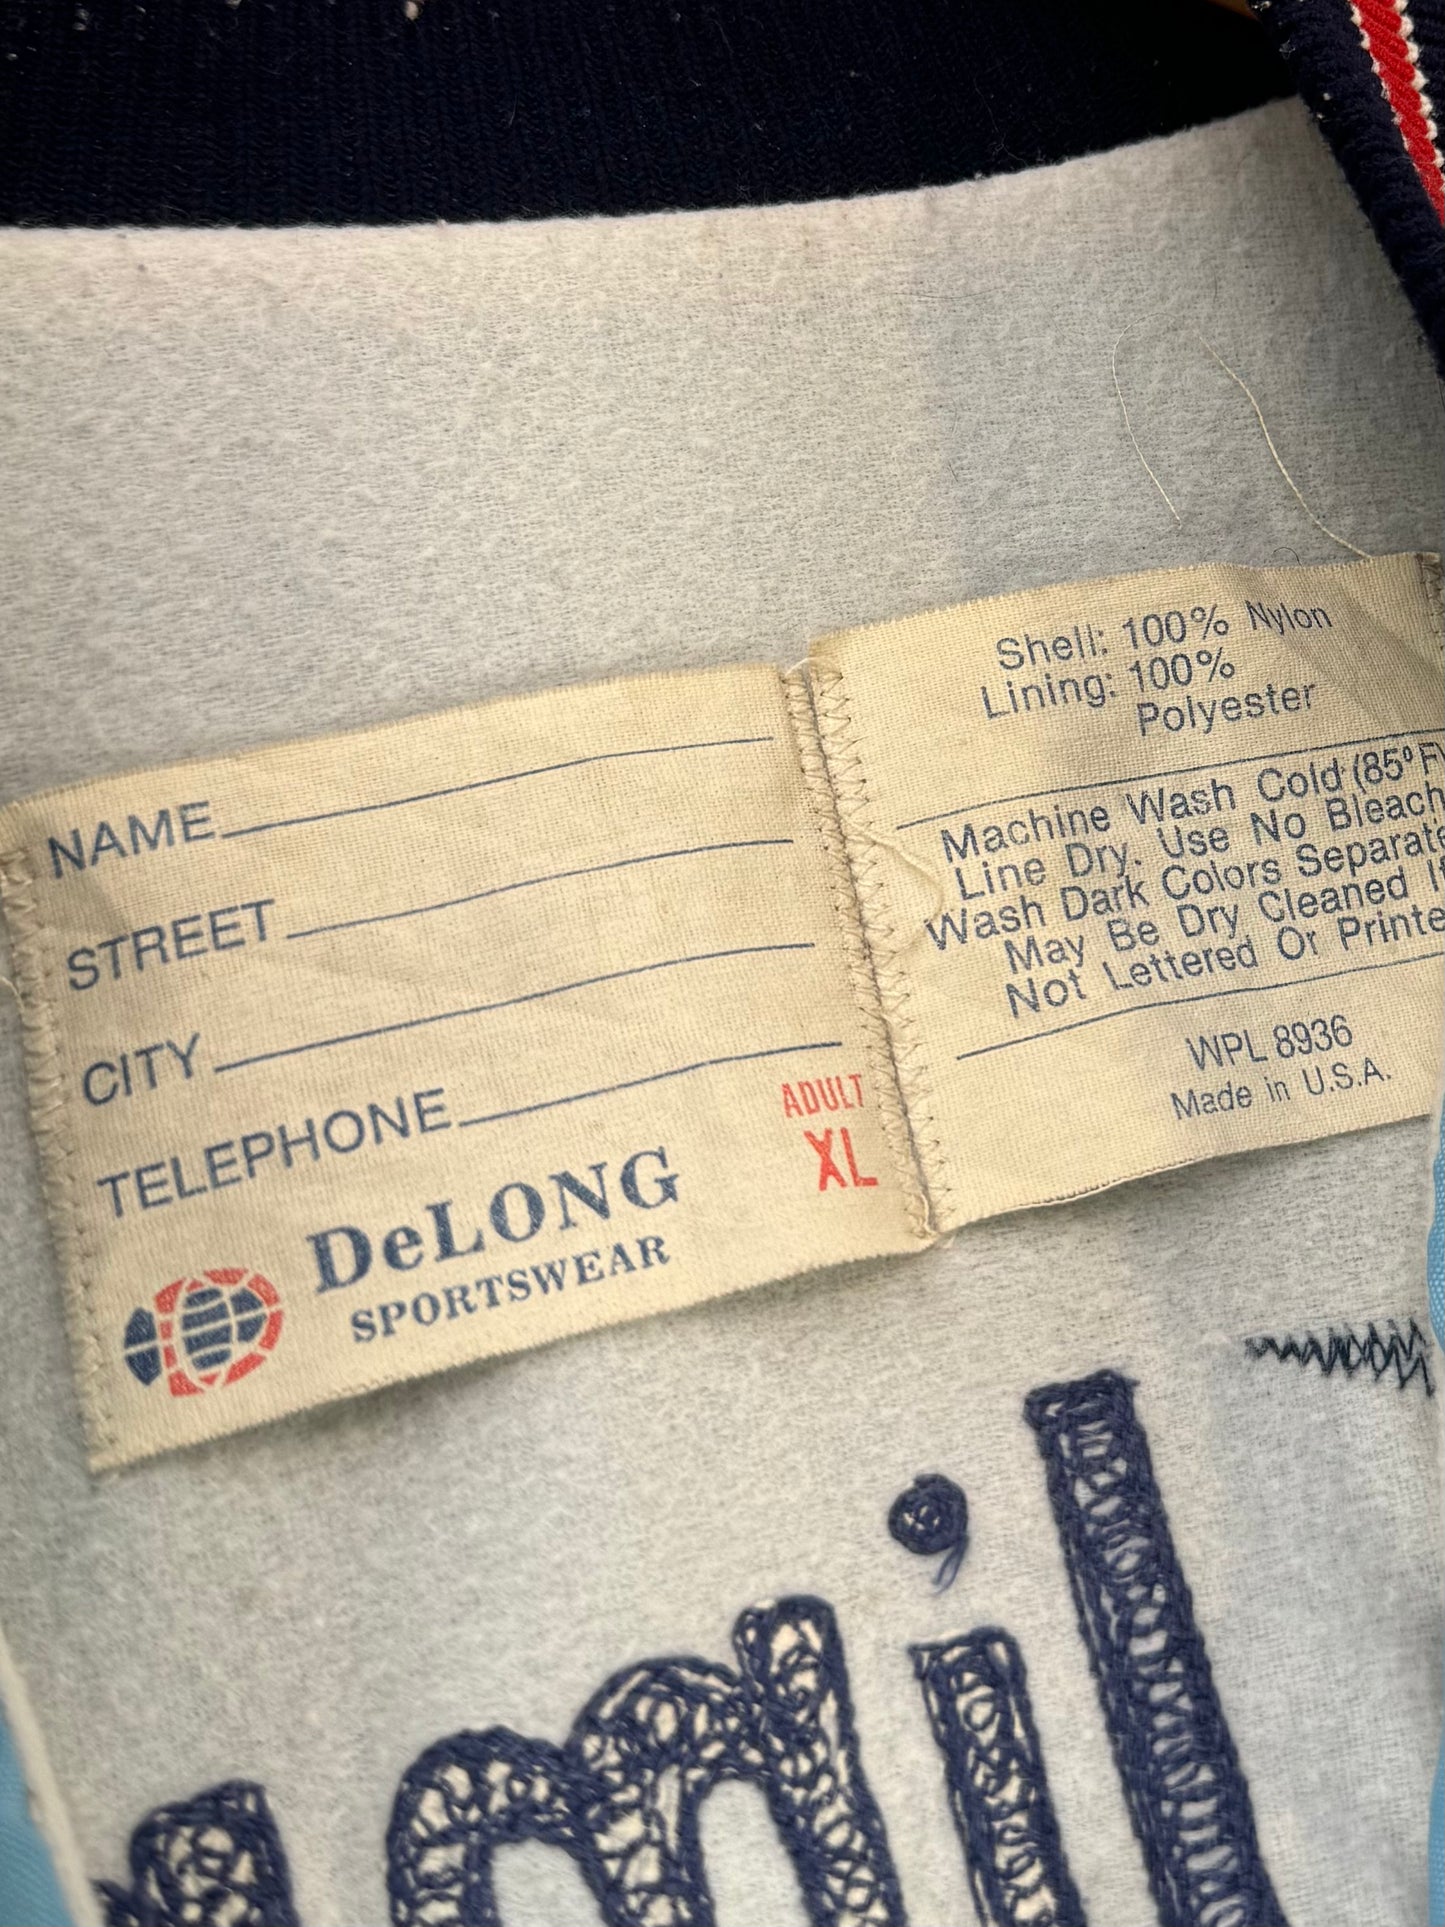 NAME
STREET
CITY
TELEPHONE
DeLONG
SPORTSWEAR
ADULT
XL
Shell: 100% Nylon
Lining: 100%
Polyester
Machine Wash Cold (85° F)
Line Dry. Use No Bleach
Wash Dark Colors Separate
May Be Dry Cleaned If
Not Lettered Or Printe
WPL 8936
Made in U.S.A.